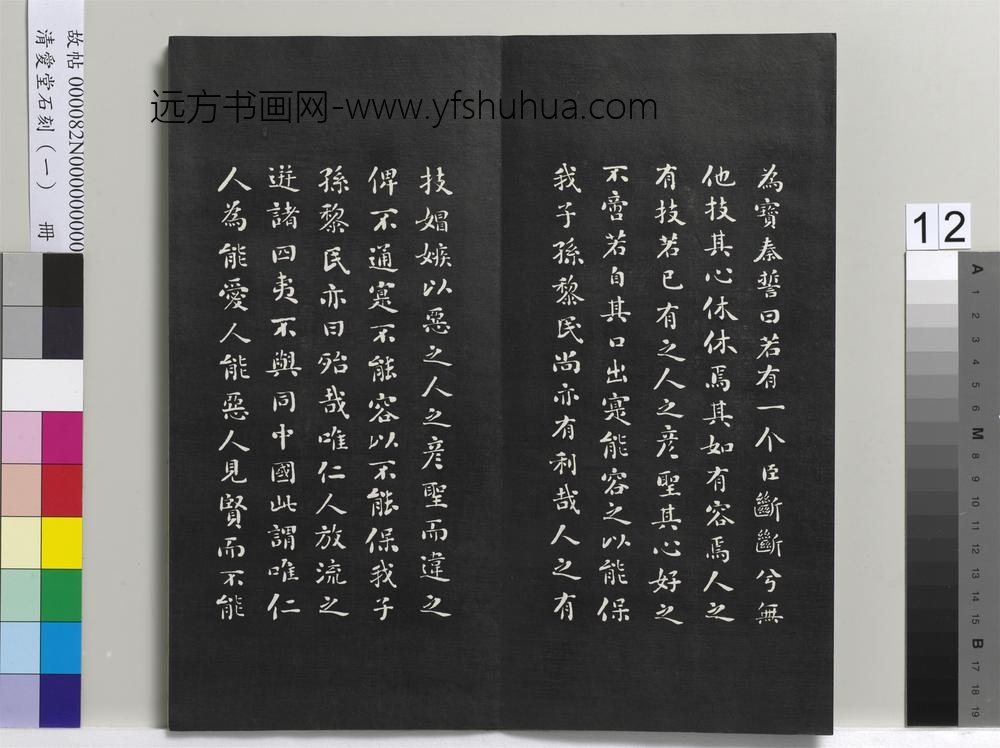 為寶秦誓曰若有一个臣斷斷兮無
他技其心休休焉其如有容焉人之
有技若已有之人之彦聖其心好之
不啻若自其口出寔能容之以能保
我子孫黎民尚亦有利哉人之有
技媢嫉以惡之人之彦聖而違之
俾不通寔不能容以不能保我子
孫黎民亦曰殆哉唯仁人放流之
迸諸四夷不與同中國此謂唯仁
人為能愛人能惡人見賢而不能
远方书画网-www.yfshuhua.com
故帖 000082N000000000
清愛堂石刻（一） 冊
12
A
1
2
3
4
5
6
M
8
9
10
11
12
13
14
15
B
17
18
19